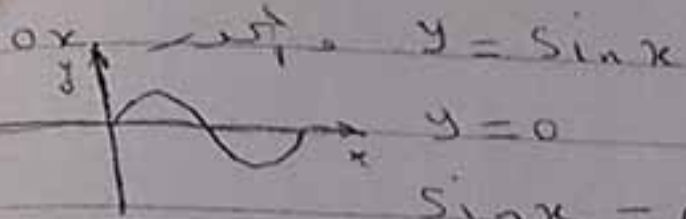 ox y = Sin x
y
y = 0
x
Sin x -